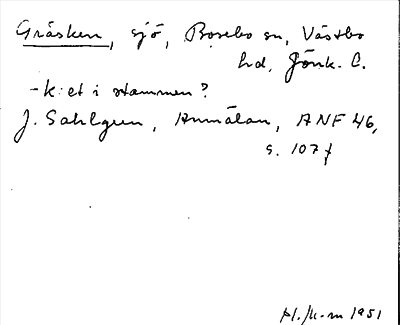 Gräsken, sjö, Bosebo sn, Västbo
hd, Jönk. l.
-k: et i stammen?
J. Sahlgren, Anmälan, ANF 46,
s. 107 f
pl./K-m 1951